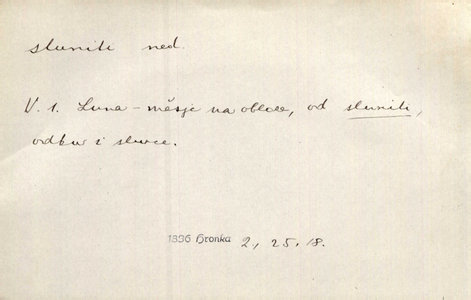 sluniti ned.
V. 1. Luna - měsje na obloze, od sluniti,
odkud i slunce.
1836 Hronka 2, 25, 18.